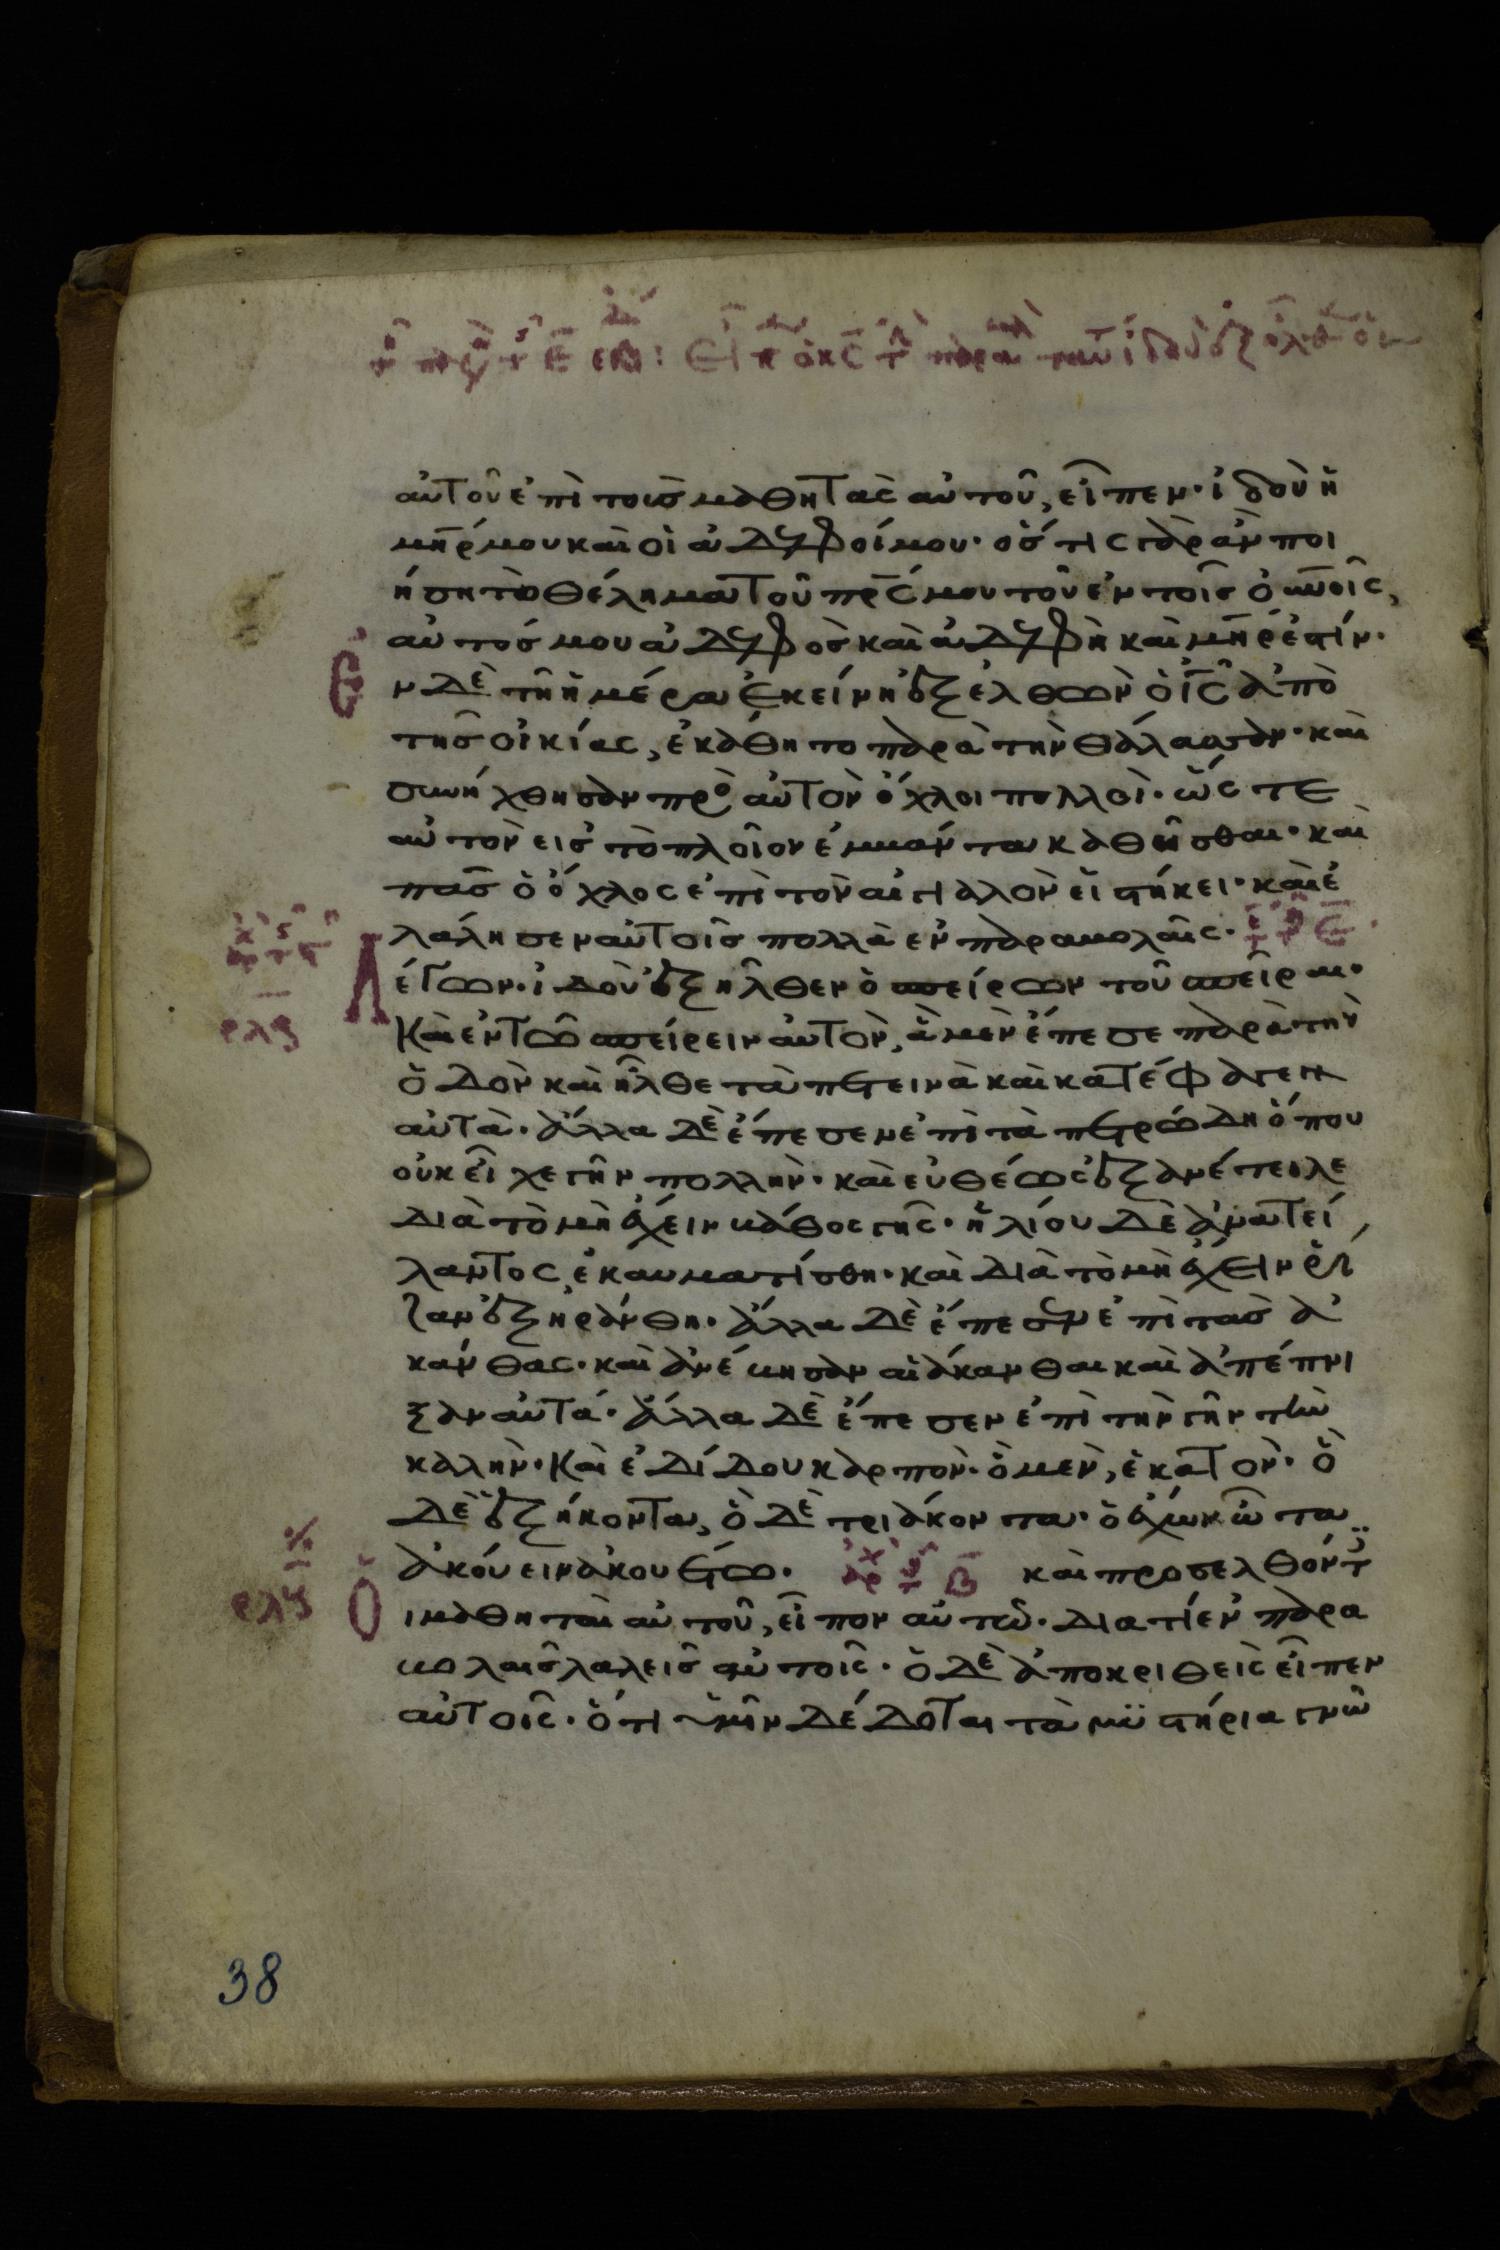 αὐτοῦ ἐπὶ τοὺς μαθητὰς αὐτοῦ, εἶπεν· ἰδοὺ ἡ
μη̅ρ μου καὶ οἱ ἀδελφοί μου· ὅστις γὰρ ἂν ποι
ήση τὸ θέλημα τοῦ πρ̅ς μου τοῦ ἐν τοῖς οὐνοῖς,
αὐτός μου ἀδελφὸς καὶ ἀδελφὴ καὶ μη̅ρ ἐστίν·
Ἐν δὲ τῆ ἡμέρα ἐκείνη ἐξελθὼν ὁ ι̅ς ἀπὸ
τῆς οἰκίας, ἐκάθητο παρὰ τὴν θάλασσαν· καὶ
συνήχθησαν πρὸς αὐτὸν ὄχλοι πολλοὶ· ὥστε
αὐτὸν εἰς τὸ πλοῖον ἐμβάντα καθῆσθαι· καὶ
πᾶς ὁ ὄχλος ἐπὶ τὸν αἰγιαλὸν εἱστήκει· καὶ ἐ
λάλησεν αὐτοῖς πολλὰ ἐν παραβολαῖς·
Λέγων· ἰδοὺ ἐξῆλθεν ὁ σπείρων τοῦ σπεῖραι·
ρλς
καὶ ἐν τῶ σπείρειν αὐτὸν, ἃ μὲν ἔπεσε παρὰ τὴν
ὁδὸν καὶ ἦλθε τὰ πετεινὰ καὶ κατέφαγεν
αὐτὰ· ἄλλα δὲ ἔπεσεν ἐπὶ τὰ πετρώδη ὅπου
οὐκ εἶχε γῆν πολλὴν· καὶ εὐθέως ἐξανέτειλε
διὰ τὸ μὴ ἔχειν βάθος γῆς· ἡλίου δὲ ἀνατεί
λαντος, ἐκαυματίσθη· καὶ διὰ τὸ μὴ ἔχειν ῥί
ζαν ἐξηράνθη· ἄλλα δὲ ἔπεσεν ἐπὶ τὰς ἀ
κάνθας· καὶ ἀνέβησαν αἱ ἄκανθαι καὶ ἀπέπνι
ξαν αὐτά· ἄλλα δὲ ἔπεσεν ἐπὶ τὴν γῆν τὴν
καλὴν· καὶ ἐδίδου καρπὸν· ὁ μὲν, ἑκατὸν· ὁ
δὲ ἑξήκοντα, ὁ δὲ τριάκοντα· ὁ ἔχων ὦτα
ἀκούειν ἀκουέτω· καὶ προσελθόντ
ρλζ
Οἱ μαθηταὶ αὐτοῦ, εἶπον αὐτῶ· διατί ἐν παρα
βολαῖς λαλεῖς αὐτοῖς· ὁ δὲ ἀποκριθεὶς εἶπεν
αὐτοῖς· ὅτι ὑμῖν δέδοται τὰ μυστήρια γνῶ
38